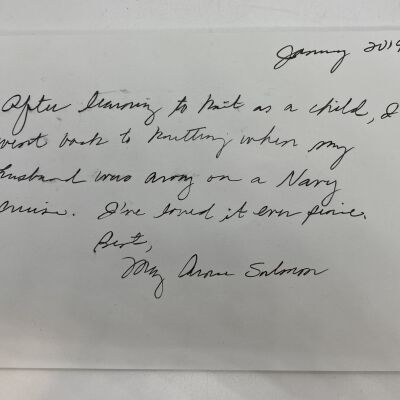 January 2019
After learning to knit as a child, I
went back to knitting when my
husband was away on a Navy
cruise. I've loved it ever since.
Best,
Salmon